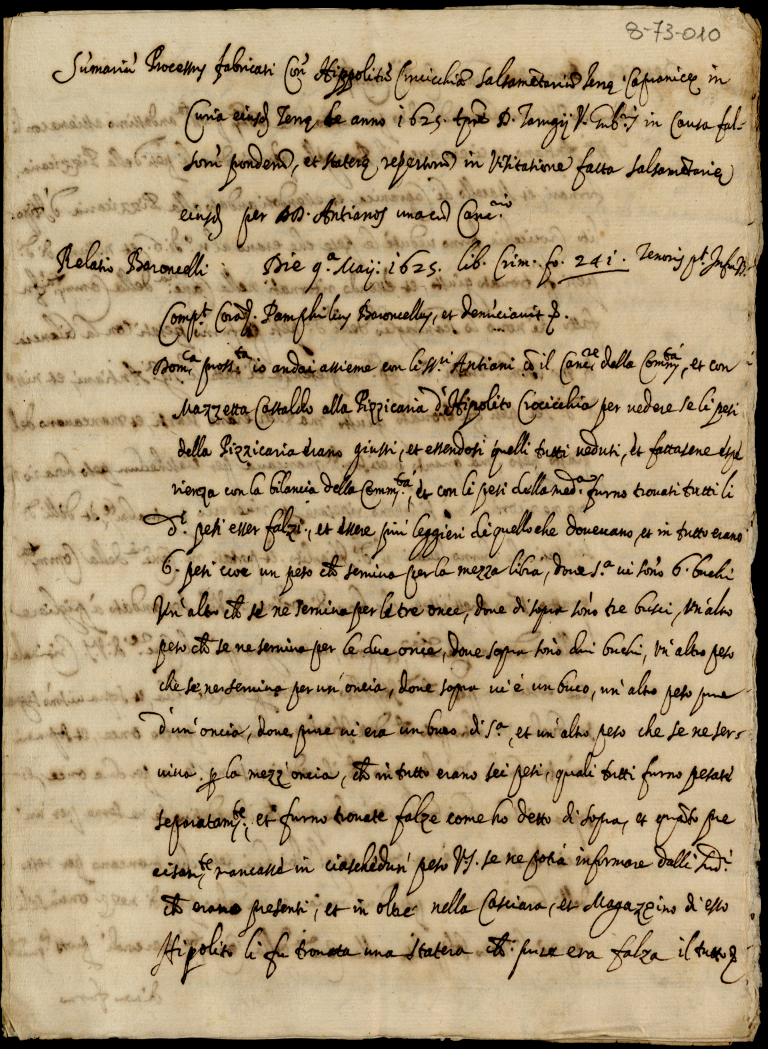 8-73-010
Sumariū Processus fabricati Con̄ Hippolitū Crucicchiā salsamētariū Terrę Capranicę in
Curia eiusd̄ Terrę de anno 1625. tpr̄e D. Tarugij V. Gub.rij in Causa fal-
sorū ponderū, et staterę repertorū in Visitatione facta salsamētarię
eiusd̄ per DD. Antianos unacū Canc.rio
Relatio Baroncelli Die 9.a Maij: 1625. lib. Crim. fo. 241. Tenoris pt.
Comp.t Corā D. Pamphilius Baroncellus, et denūciavit
Dom.ca pross.ta io andai assieme con li ss.ri Antiani ē il Canc.re della Comm.tà, et con
Mazzetta Castaldo alla Pizzicaria d'Hipolito Crocicchia per vedere se li pesi
della Pizzicaria erano giusti, et essendosi quelli tutti veduti, et fattasene espe
rienza con la bilancia della Comm.tà, et con li pesi della med.a furno trovati tutti li
D.i pesi esser falzi, et essere più leggieri di quello che dovevano, et in tutto erano
6. pesi cioè un peso ch̄ serviva per la mezza libra, dove s.a vi sono 6. buchi
Un'altro ch̄ se ne serviva per le tre once, dove di sopra sono tre busci, Un'altro
peso ch̄ se ne serviva per le due oncie, dove sopra sono dui buchi, Un'altro peso
che se ne serviva per un'oncia, dove sopra vi è un buco, un'altro peso pure
d'un'oncia, dove pure vi era un buco di s.a, et un'altro peso che se ne ser-
viva p̱ la mezz'oncia, ch̄ in tutto erano sei pesi, quali tutti furno pesati
separatam.te, et furno trovate falze come ho detto di sopra, et quāto pre
cisam.te mancasse in ciaschedun peso V.S. se ne potrà informare dalli Sud.i
ch̄ erano presenti, et in oltre nella Casciara, et Magazzino di esso
Hipolito li fu trovata una statera ch̄ pure era falza il tutto